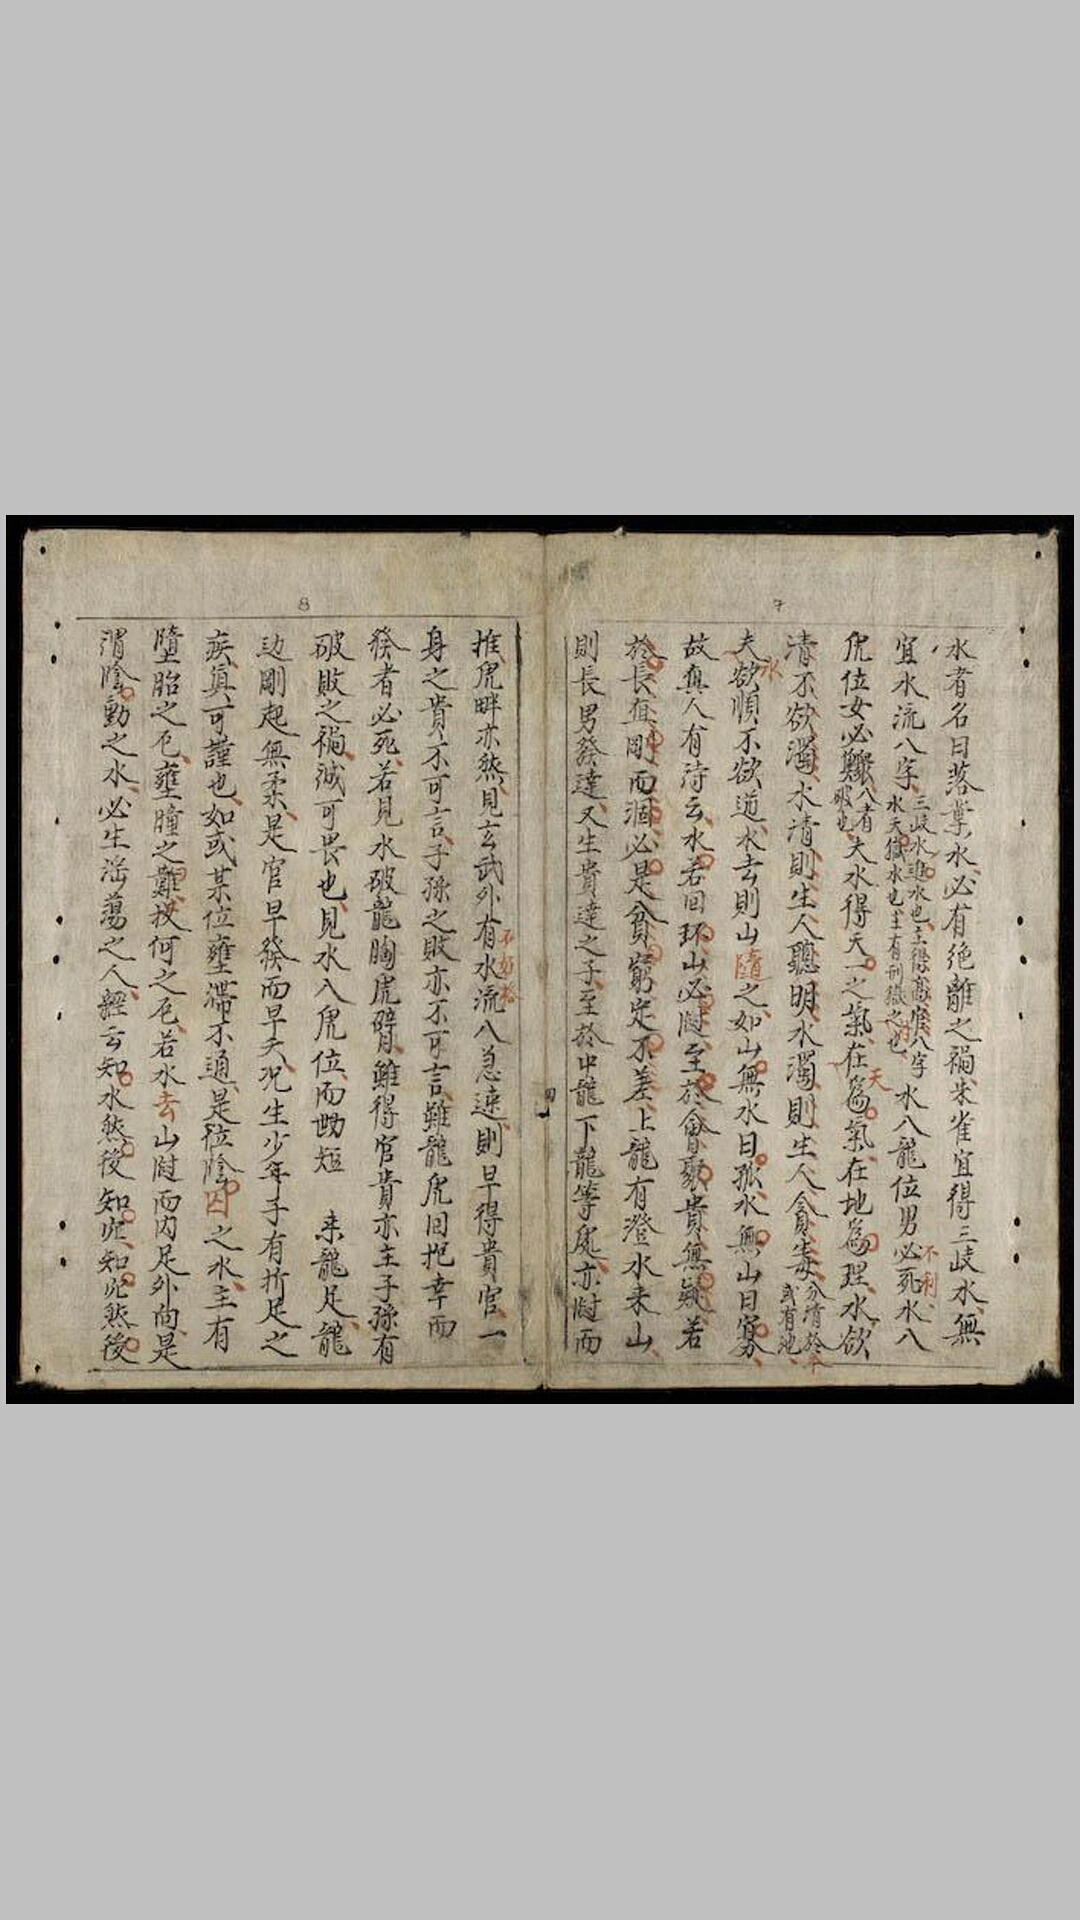 7
水者名曰落業水必有絶離之禍朱雀宜得三岐水無
宜水流八字
三岐水進水也主得高官八字
水天獄水也主有刑獄之也
水入龍位男必死水入
不利
虎位女必
入者
破也
夫水得天一之氣在
天
為氣在地為理水欲
清不欲濁水清則生人聰明水濁則生人貪毒
夫欲順不欲逆水去則山隨之如山無水曰孤水無山曰寡
水
故真人有詩云水若回环山必
至於會聚貴無疑若
於長直剛而涸必是貧窮定不差上龍有澄水来山
則長男發達又生貴達之子至於中龍下龍等處亦
而
8
推虎畔亦然見玄武外有水流入急速則早得貴官一
身之貴不可言子孫之敗亦不可言雖龍虎回抱幸而
發者必死若見水破龍胸虎臂雖得官貴亦主子孫有
破敗之禍誠可畏也見水入虎位而
短 来龍足龍
边剛起無柔是官早發而早夭况生少年子有折足之
疾真可謹也如或某位壅滯不通是位陰囚之水主有
墮胎之厄壅
之難
何之厄若水去山
而内足外向是
謂陰動之水必生滛蕩之人經云知水然後知
知
然後